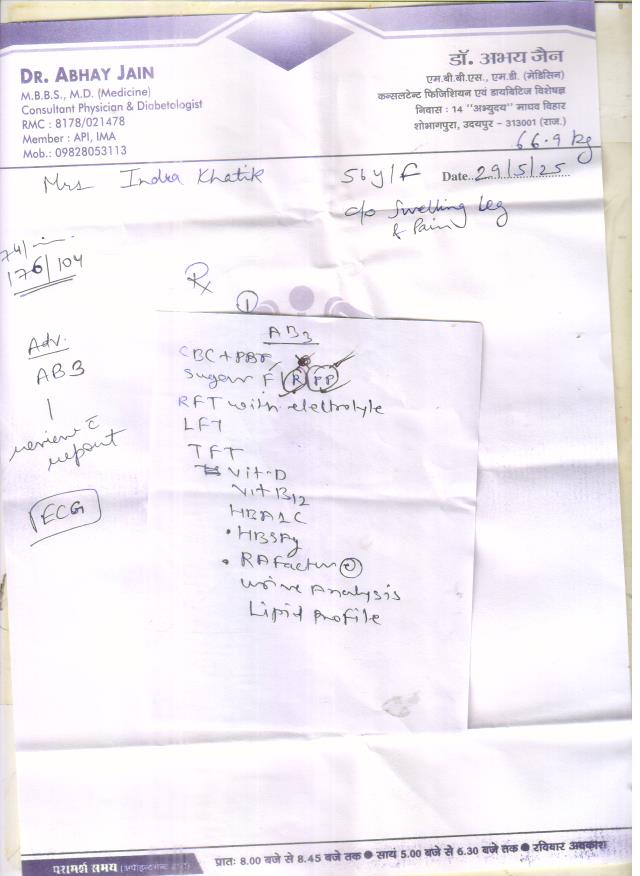 DR. ABHAY JAIN
M.B.B.S., M.D. (Medicine)
Consultant Physician & Diabetologist
RMC : 8178/021478
Member : API, IMA
Mob.: 09828053113
डॉ. अभय जैन
एम.बी.बी.एस., एम.डी. (मेडिसिन)
कन्सलटेन्ट फिजिशियन एवं डायबिटिज विशेषज्ञ
निवास : 14 "अभ्युदय" माधव विहार
शोभागपुरा, उदयपुर - 313001 (राज.)
66.9 kg
Mrs Indra Khatik 56y/F Date..29/5/25
c/o Swelling Leg
& Pain
74/
176/104
Rx
1
Adv.
AB3
review c̄
report
ECG
AB3
CBC + PBF
Sugar F R PP
RFT with elektrolyte
LFT
TFT
Vit-D
Vit B12
HBA1C
• HBSAg
• RA Factor
urine Analysis
Lipid Profile
परामर्श समय
प्रातः 8.00 बजे से 8.45 बजे तक ● सायं 5.00 बजे से 6.30 बजे तक ● रविवार अवकाश